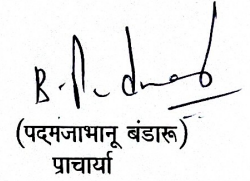 (पद्मजाभानू बंडारू)
प्राचार्या